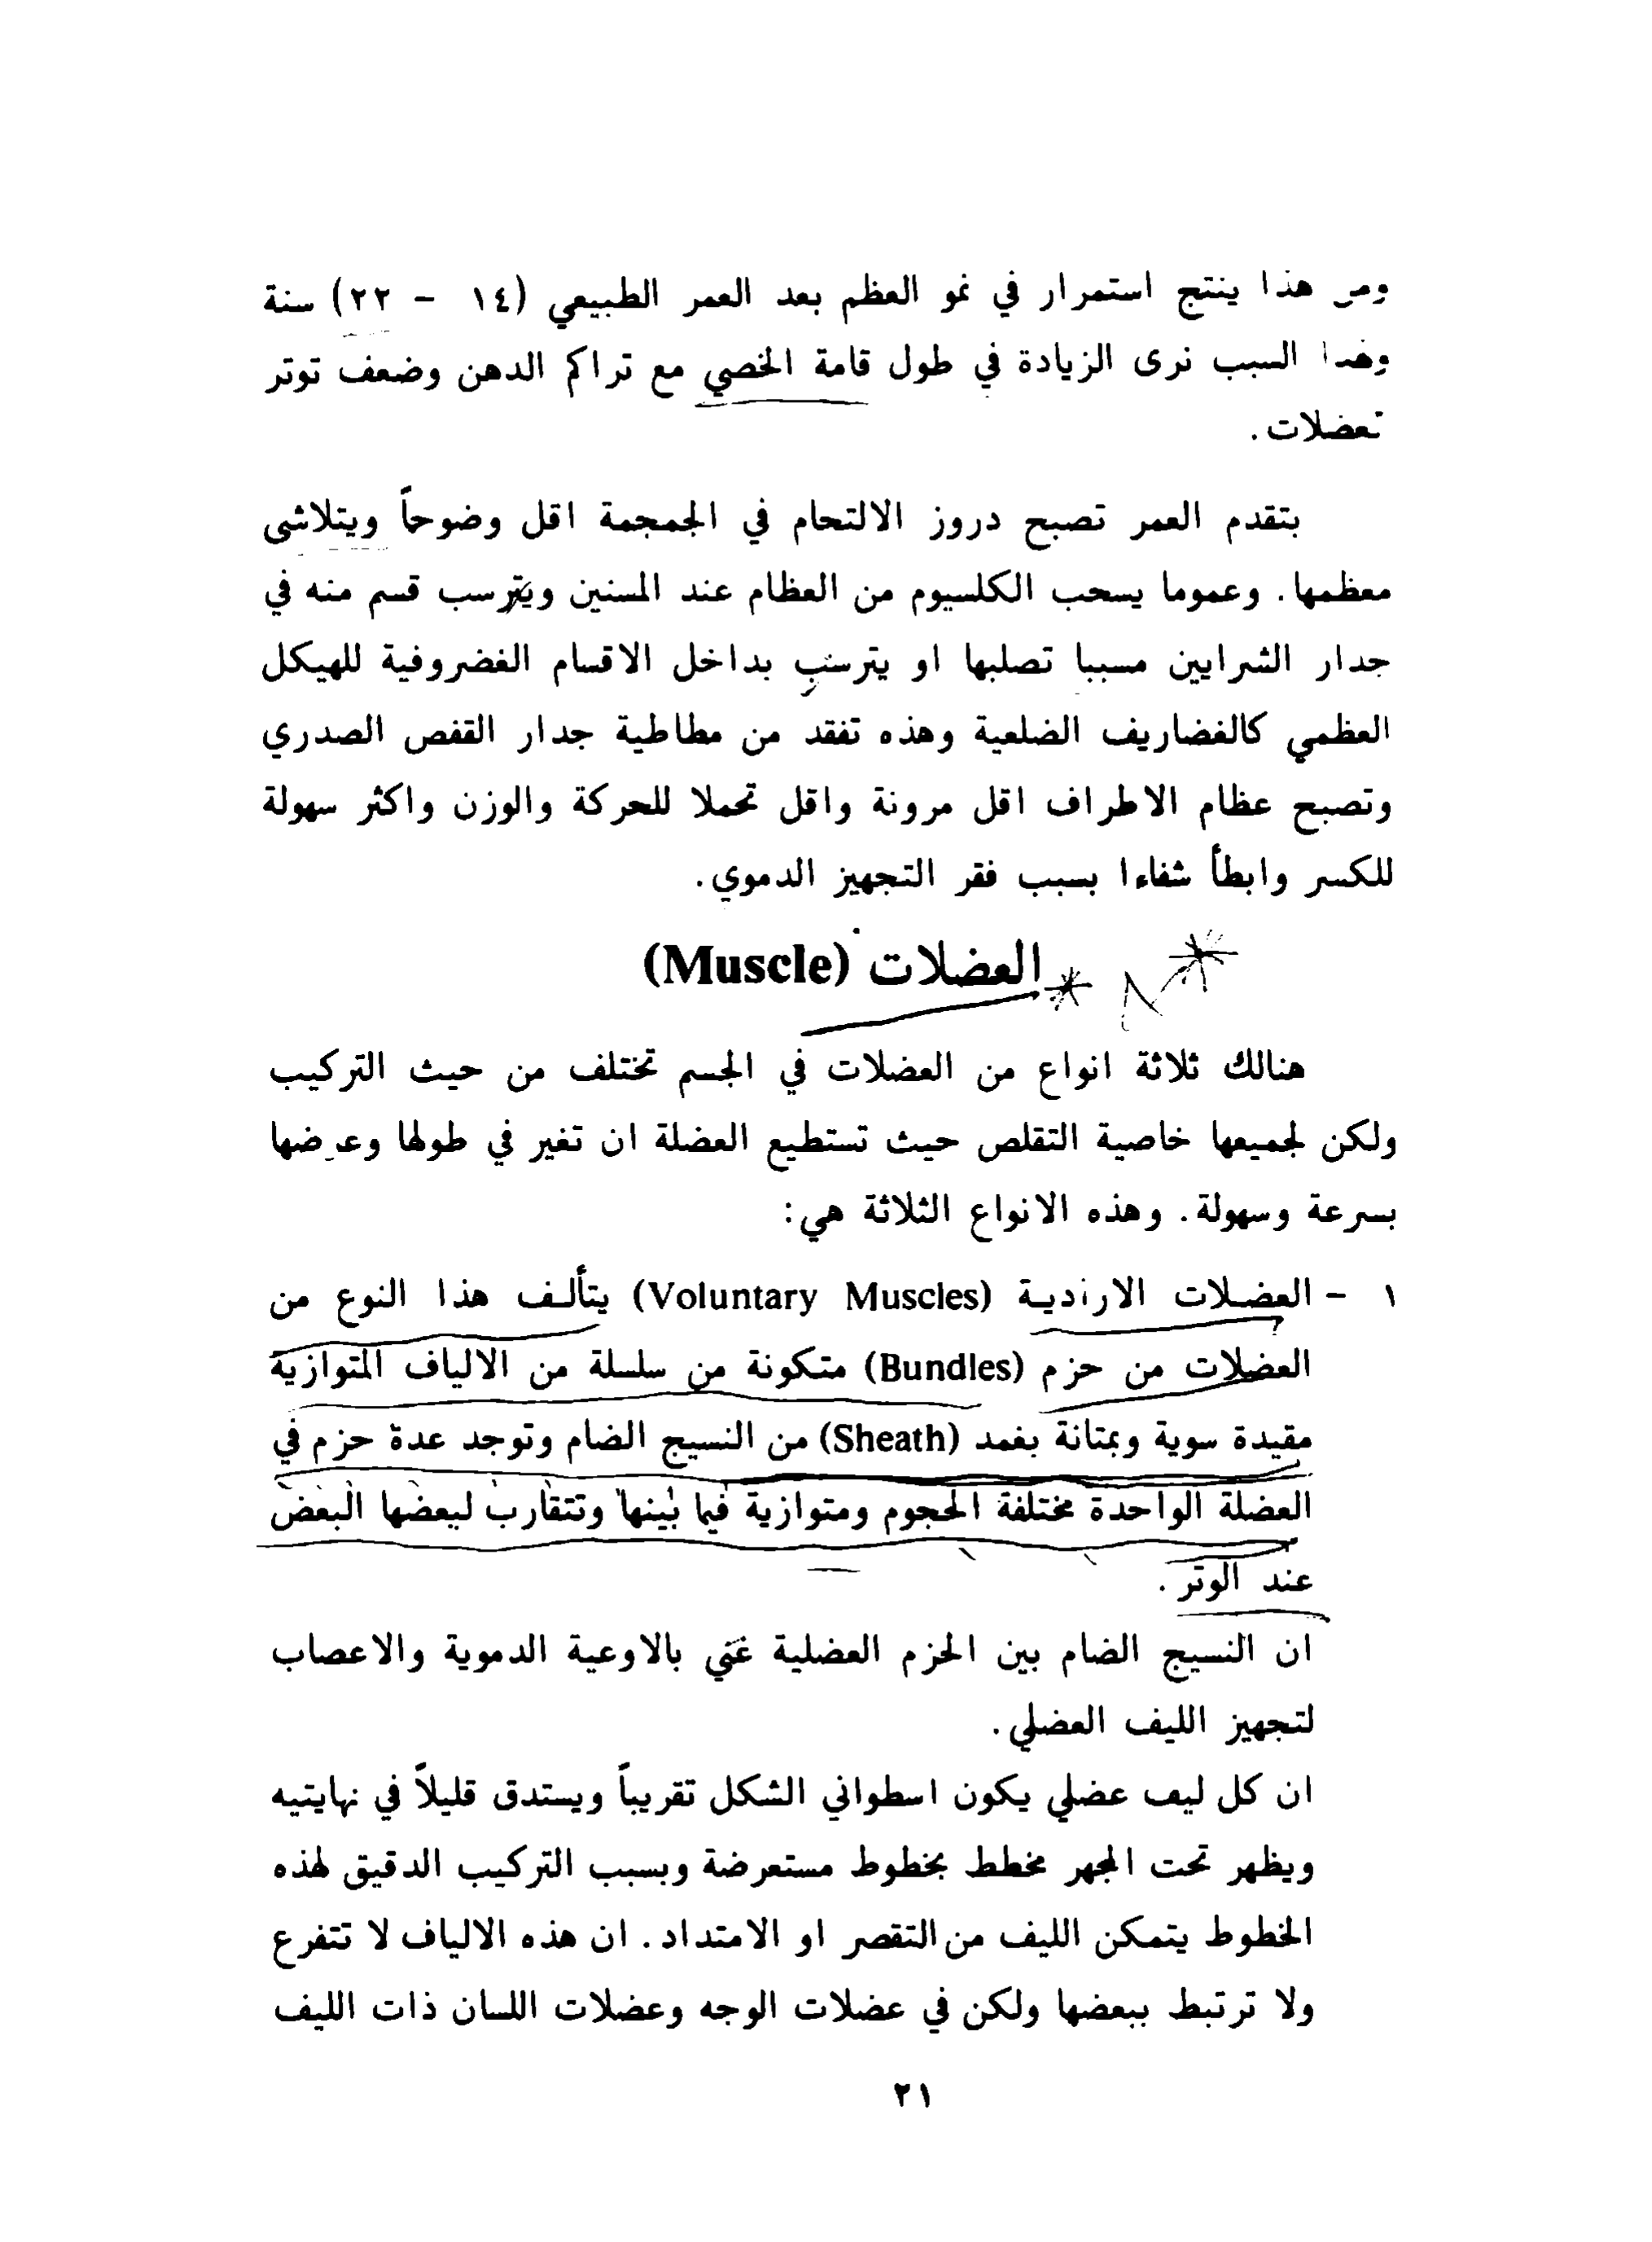 ومن هذا ينتج استمرار في نمو العظم بعد العمر الطبيعي (١٤ - ٢٢) سنة
وهذا السبب نرى الزيادة في طول قامة الخصي مع تراكم الدهن وضعف توتر
العضلات.
بتقدم العمر تصبح دروز الالتحام في الجمجمة اقل وضوحاً ويتلاشى
معظمها. وعموما يسحب الكلسيوم من العظام عند المسنين ويترسب قسم منه في
جدار الشرايين مسببا تصلبها او يترسب بداخل الاقسام الغضروفية للهيكل
العظمي كالغضاريف الضلعية وهذه تفقد من مطاطية جدار القفص الصدري
وتصبح عظام الاطراف اقل مرونة واقل تحملا للحركة والوزن واكثر سهولة
للكسر وابطأ شفاءا بسبب فقر التجهيز الدموي.
العضلات (Muscle)
هنالك ثلاثة انواع من العضلات في الجسم تختلف من حيث التركيب
ولكن لجميعها خاصية التقلص حيث تستطيع العضلة ان تغير في طولها وعرضها
بسرعة وسهولة. وهذه الانواع الثلاثة هي:
١ - العضلات الارادية (Voluntary Muscles) يتألف هذا النوع من
العضلات من حزم (Bundles) متكونة من سلسلة من الالياف المتوازية
مقيدة سوية وبمتانة بغمد (Sheath) من النسيج الضام وتوجد عدة حزم في
العضلة الواحدة مختلفة الحجوم ومتوازية فيما بينها وتتقارب لبعضها البعض
عند الوتر.
ان النسيج الضام بين الحزم العضلية غني بالاوعية الدموية والاعصاب
لتجهيز الليف العضلي.
ان كل ليف عضلي يكون اسطواني الشكل تقريباً ويستدق قليلاً في نهايتيه
ويظهر تحت المجهر مخطط بخطوط مستعرضة وبسبب التركيب الدقيق لهذه
الخطوط يتمكن الليف من التقصر او الامتداد. ان هذه الالياف لا تتفرع
ولا ترتبط ببعضها ولكن في عضلات الوجه وعضلات اللسان ذات الليف
٢١